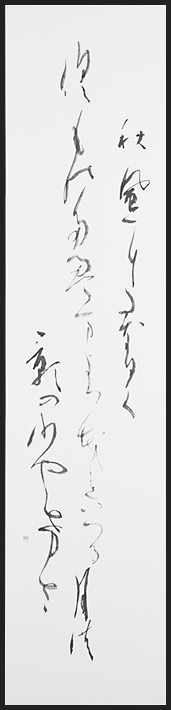 秋風にたなひく
雲のたえまよりもれいつる月の
影のさやけさ